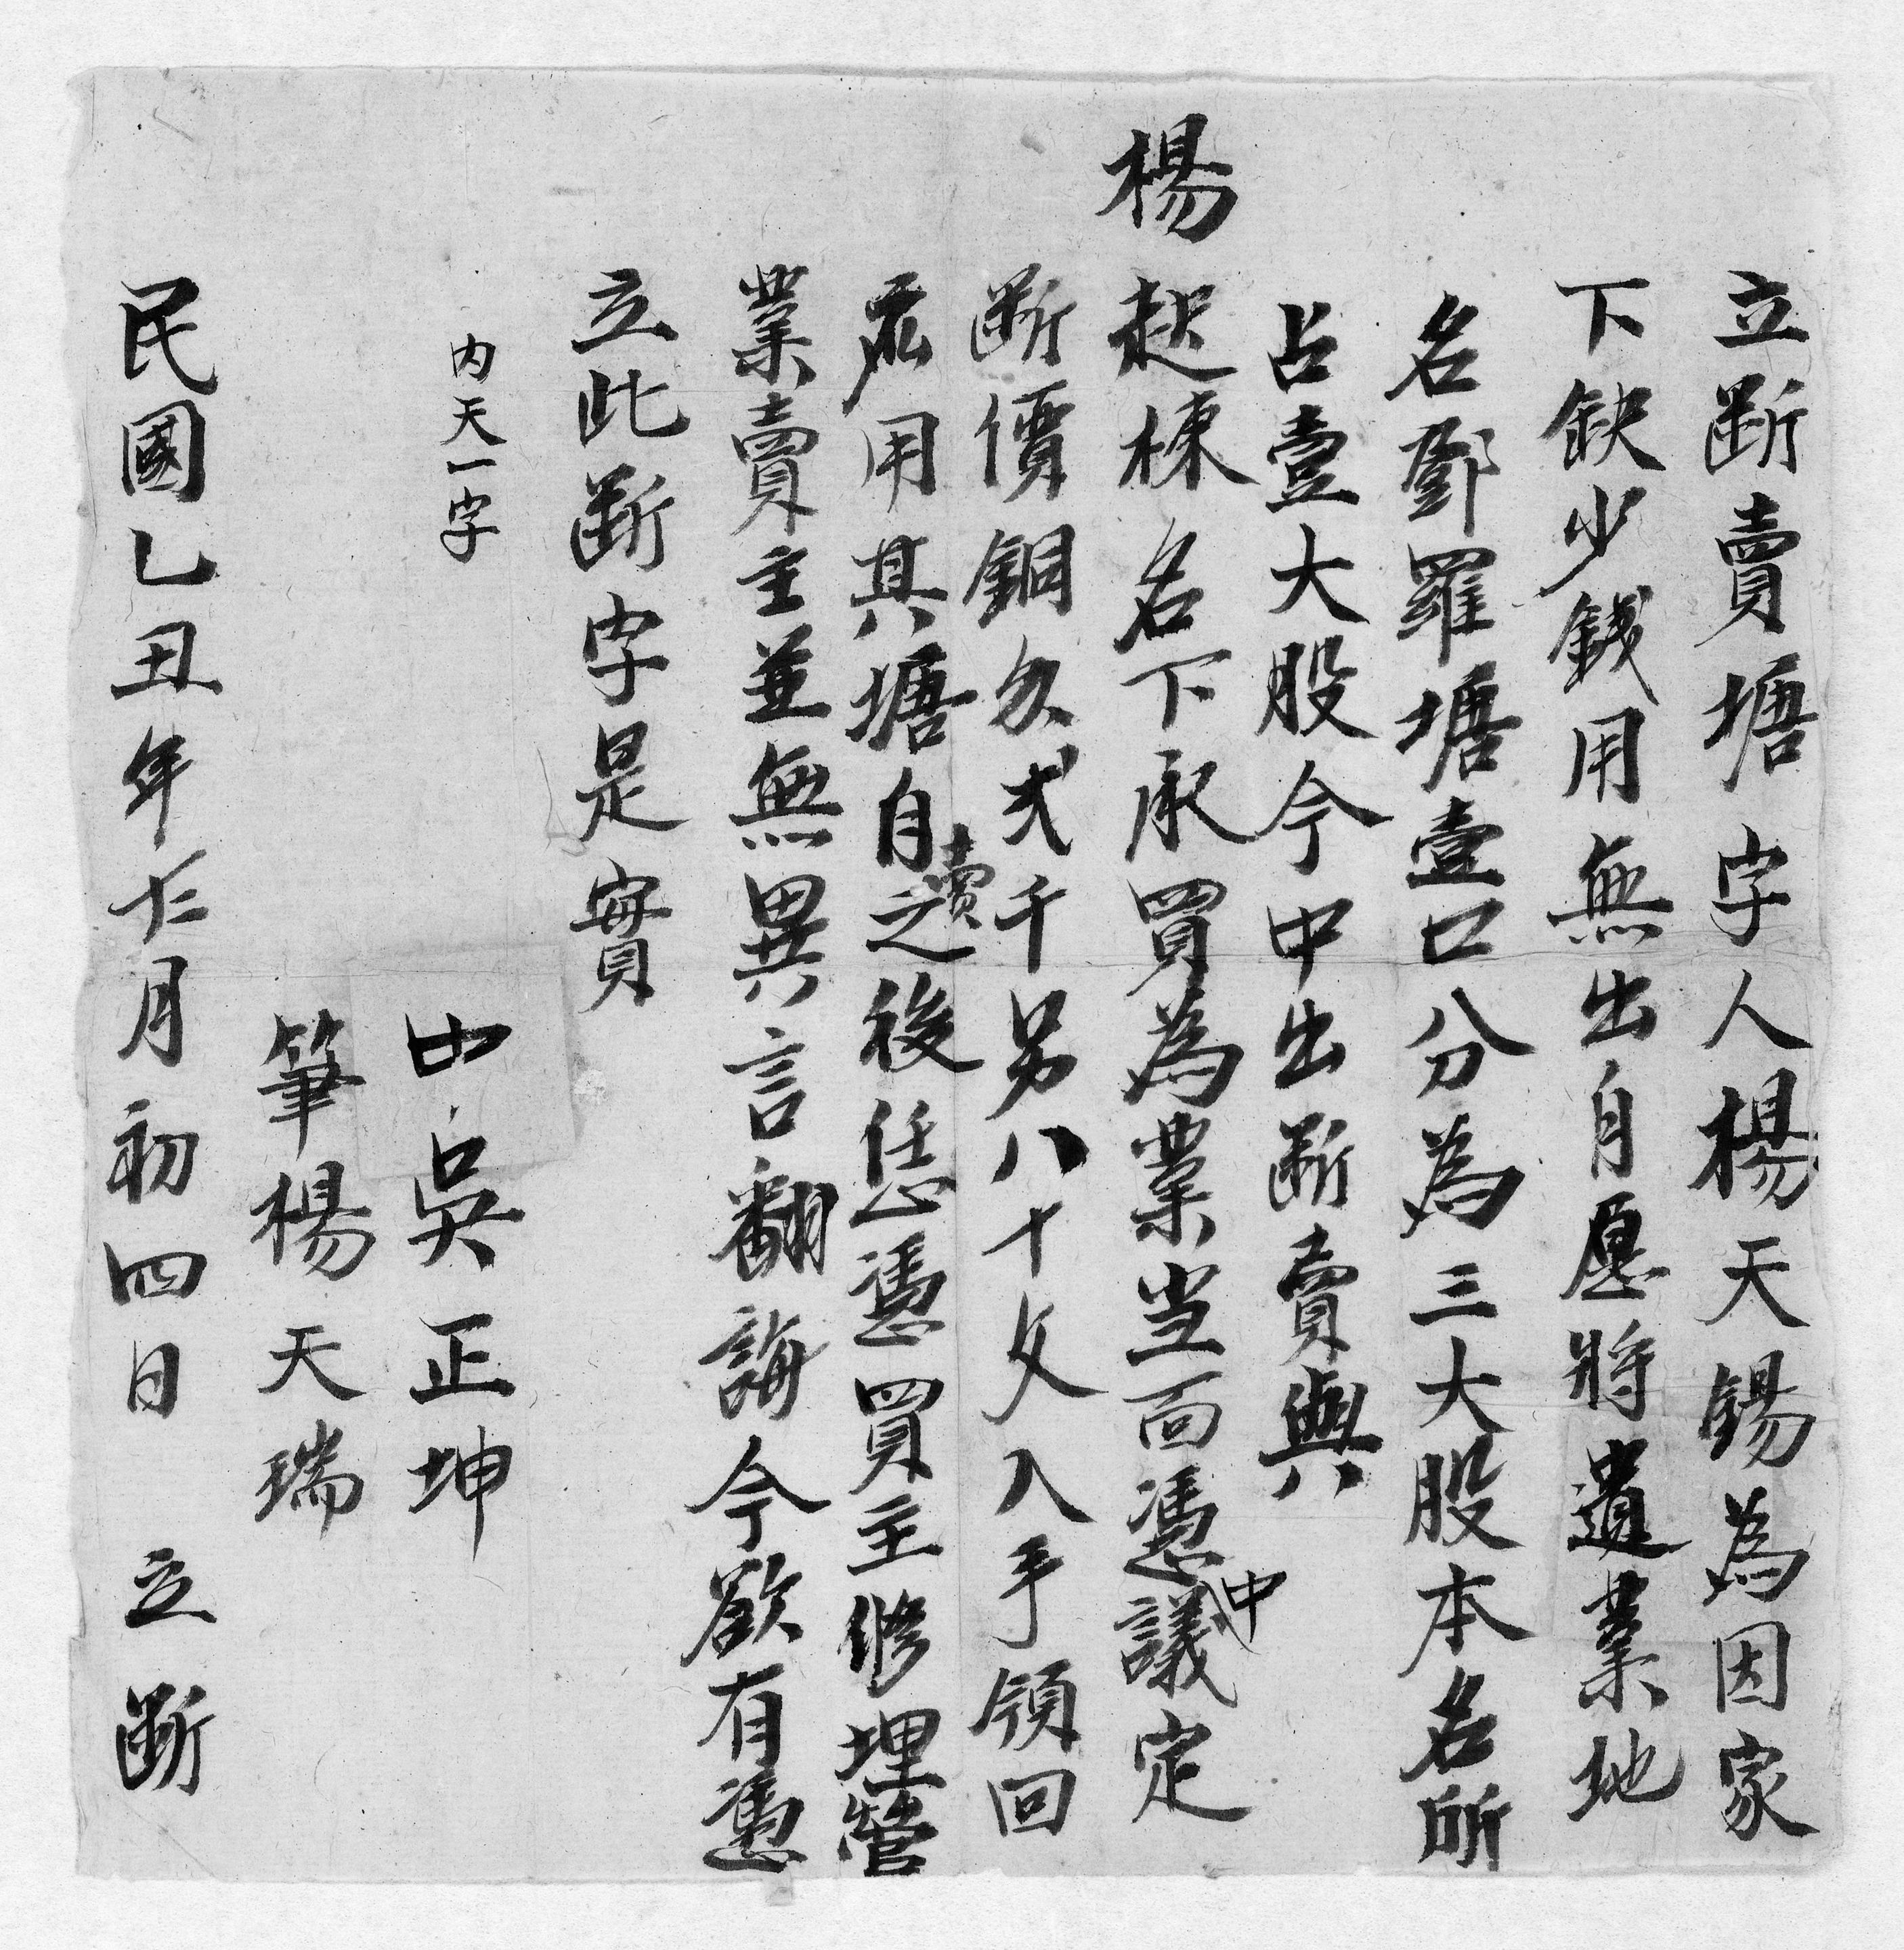 立断賣塘字人楊天錫為因家
下缺少錢用無出自愿將遺業地
名鄧羅塘壹口分為三大股本名所
占壹大股今中出断賣與
楊起棟名下承買為業当面憑中議定
断價銅仈弍千另八十文入手領回
應用其塘自賣之後恁憑買主修理營
業賣主並無異言翻誨今欲有憑
立此断字是實
内天一字
中吳正坤
筆楊天瑞
民國乙丑年十二月初四日 立断